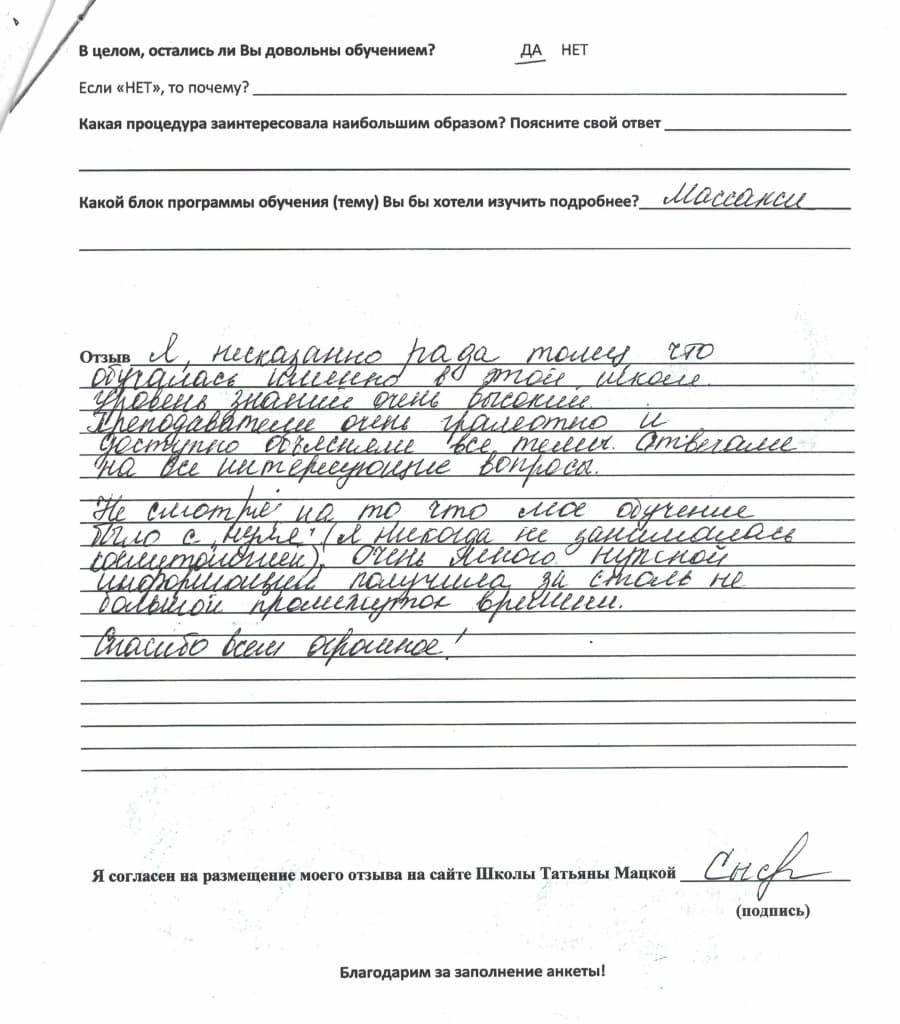 В целом, остались ли Вы довольны обучением? ДА НЕТ
Если «НЕТ», то почему?
Какая процедура заинтересовала наибольшим образом? Поясните свой ответ
Какой блок программы обучения (тему) Вы бы хотели изучить подробнее? Массажи
Отзыв Я, несказанно рада тому что
обучалась именно в этой школе.
Уровень знаний очень высокий.
Преподаватели очень грамотно и
доступно объясняли все темы. Отвечали
на все интересующие вопросы.
Не смотря на то что мое обучение
было с "нуля" (я никогда не занималась
косметологией). Очень много нужной
информации получила за столь не
большой промежуток времени.
Спасибо всем огромное!
Я согласен на размещение моего отзыва на сайте Школы Татьяны Мацкой
(подпись)
Благодарим за заполнение анкеты!